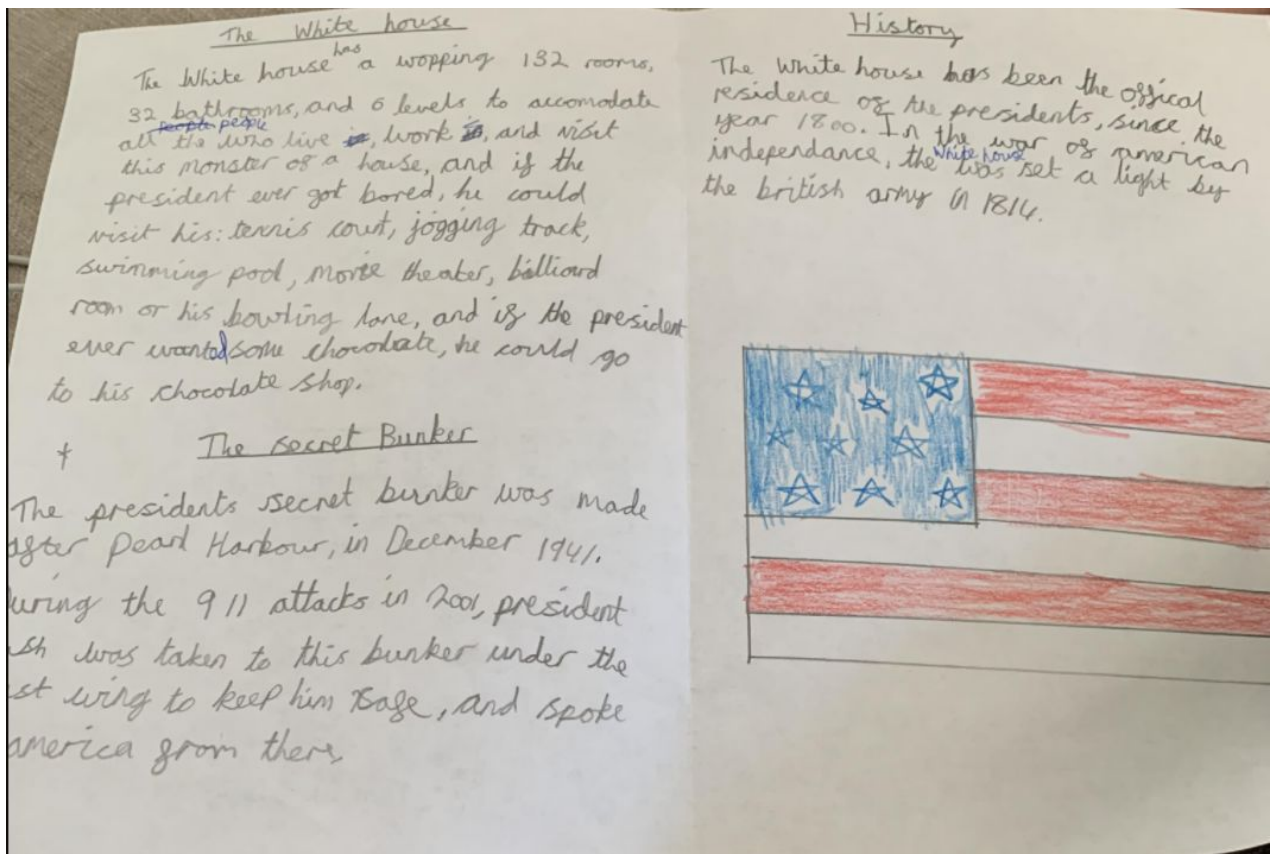 The White house
The White house has a wopping 132 rooms,
32 bathrooms, and 6 levels to accomodate
all the people who live, work, and visit
this monster of a house, and if the
president ever got bored, he could
visit his: tennis court, jogging track,
swimming pool, movie theater, billiard
room or his bowling lane, and if the president
ever wanted some chocolate, he could go
to his chocolate shop.
The secret Bunker
The presidents secret bunker was made
after Pearl Harbour, in December 1941.
uring the 911 attacks in 2001, president
sh was taken to this bunker under the
st wing to keep him safe, and spoke
america from there,
History
The White house has been the offical
residence of the presidents, since the
year 1800. In the war of american
independance, the White house was set a light by
the british army in 1814.